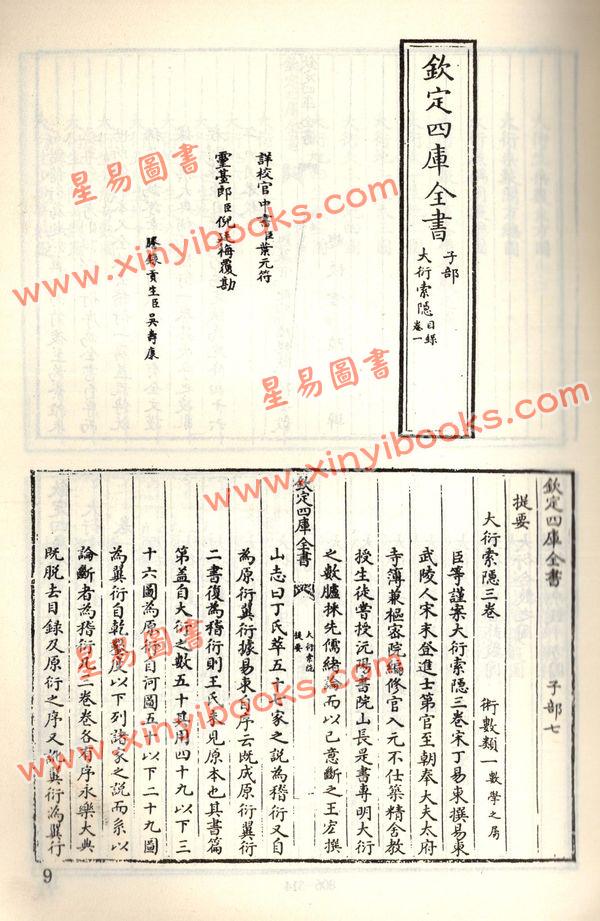 欽定四庫全書
子部
大衍索隱目錄
卷一
詳校官中書臣葉元符
靈臺郎臣倪廷梅覆勘
謄錄貢生臣吳壽康
欽定四庫全書 子部七
提要
大衍索隱三卷 術數類一數學之屬
臣等謹案大衍索隱三卷宋丁易東撰易東
武陵人宋末登進士第官至朝奉大夫太府
寺簿兼樞密院編修官入元不仕築精舍教
授生徒嘗授沅陽書院山長是書專明大衍
之數臚採先儒緒論而以己意斷之王宏撰
欽定四庫全書
大衍索隱
提要
山志曰丁氏萃五十七家之說為稽衍又自
為原衍翼衍據易東自序云既成原衍翼衍
二書復為稽衍則王氏未見原本也其書篇
第蓋自大衍之數五十其用四十九以下三
十六圖為原衍自河圖五十以下二十九圖
為翼衍自乾鑿度以下列諸家之說而系以
論斷者為稽衍凡三卷卷各有序永樂大典
既脫去目錄及原衍之序又訛翼衍為翼行
9
806-314
星易圖書
www.xinyibooks.com
星易圖書
www.xinyibooks.com
www.xinyibooks.com
星易圖書
www.xinyibooks.com